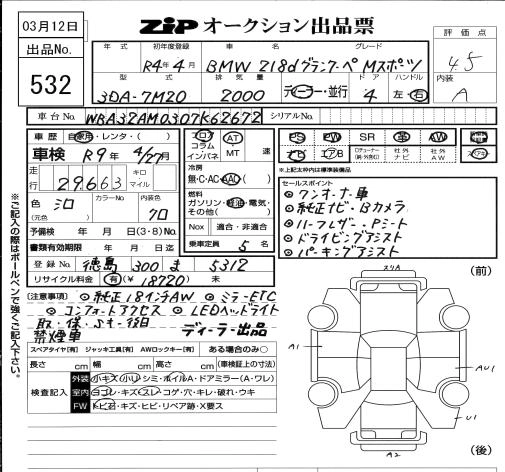 03月12日
ZIP オークション出品票
出品No.
532
評価点
4.5
内装
A
年式 初年度登録 車名 グレード
R4年4月 BMW 218dグランクーペ Mスポーツ
型式 排気量 ドア ハンドル
3DA-7M20 2000 ディーラー・並行 4 左・右
車台No. WBA32AM0307K62672 シリアルNo.
車歴 自家用・レンタ・( )
車検 R9年 4/27月
走行 29,663 キロ マイル
色 シロ (元色) カラーNo. 内装色 クロ
予備検 年 月 日(3・8)No.
書類有効期限 年 月 日迄
登録No. 徳島 300 ま 5312
リサイクル料金 有(¥ 18720 ) 未
フロア コラム インパネ
AT MT 速
冷房
無・C・AC・AAC
燃料
ガソリン・軽油・電気・その他( )
Nox 適合・非適合
乗車定員 5 名
PS PW SR 革 AW
ナビ エアB
社外ナビ 社外AW
※上記太枠内は標準装備品
セールスポイント
ワンオーナー車
純正ナビ・Bカメラ
ハーフレザー・Pシート
ドライビングアシスト
パーキングアシスト
【注意事項】 純正18インチAW ミラーETC
コンフォートアクセス LEDヘッドライト
取・保・
禁煙車 ディーラー出品
スペアタイヤ[有] ジャッキ工具[有] AWロックキー[有] ある場合のみ○
長さ cm 幅 cm 高さ cm (車検証上の寸法)
検査記入
外装 小キズ・小凹・シミ・ホイルA・ドアミラー(A・ワレ)
室内 ヨゴレ・キズ・スレ・コゲ・穴・キレ・破れ・ウキ
FW トビ石・キズ・ヒビ・リペア跡・X要ス
※ご記入の際はボールペンで強くご記入下さい。
(前)
スリA
A1
AU1
U1
A2
(後)